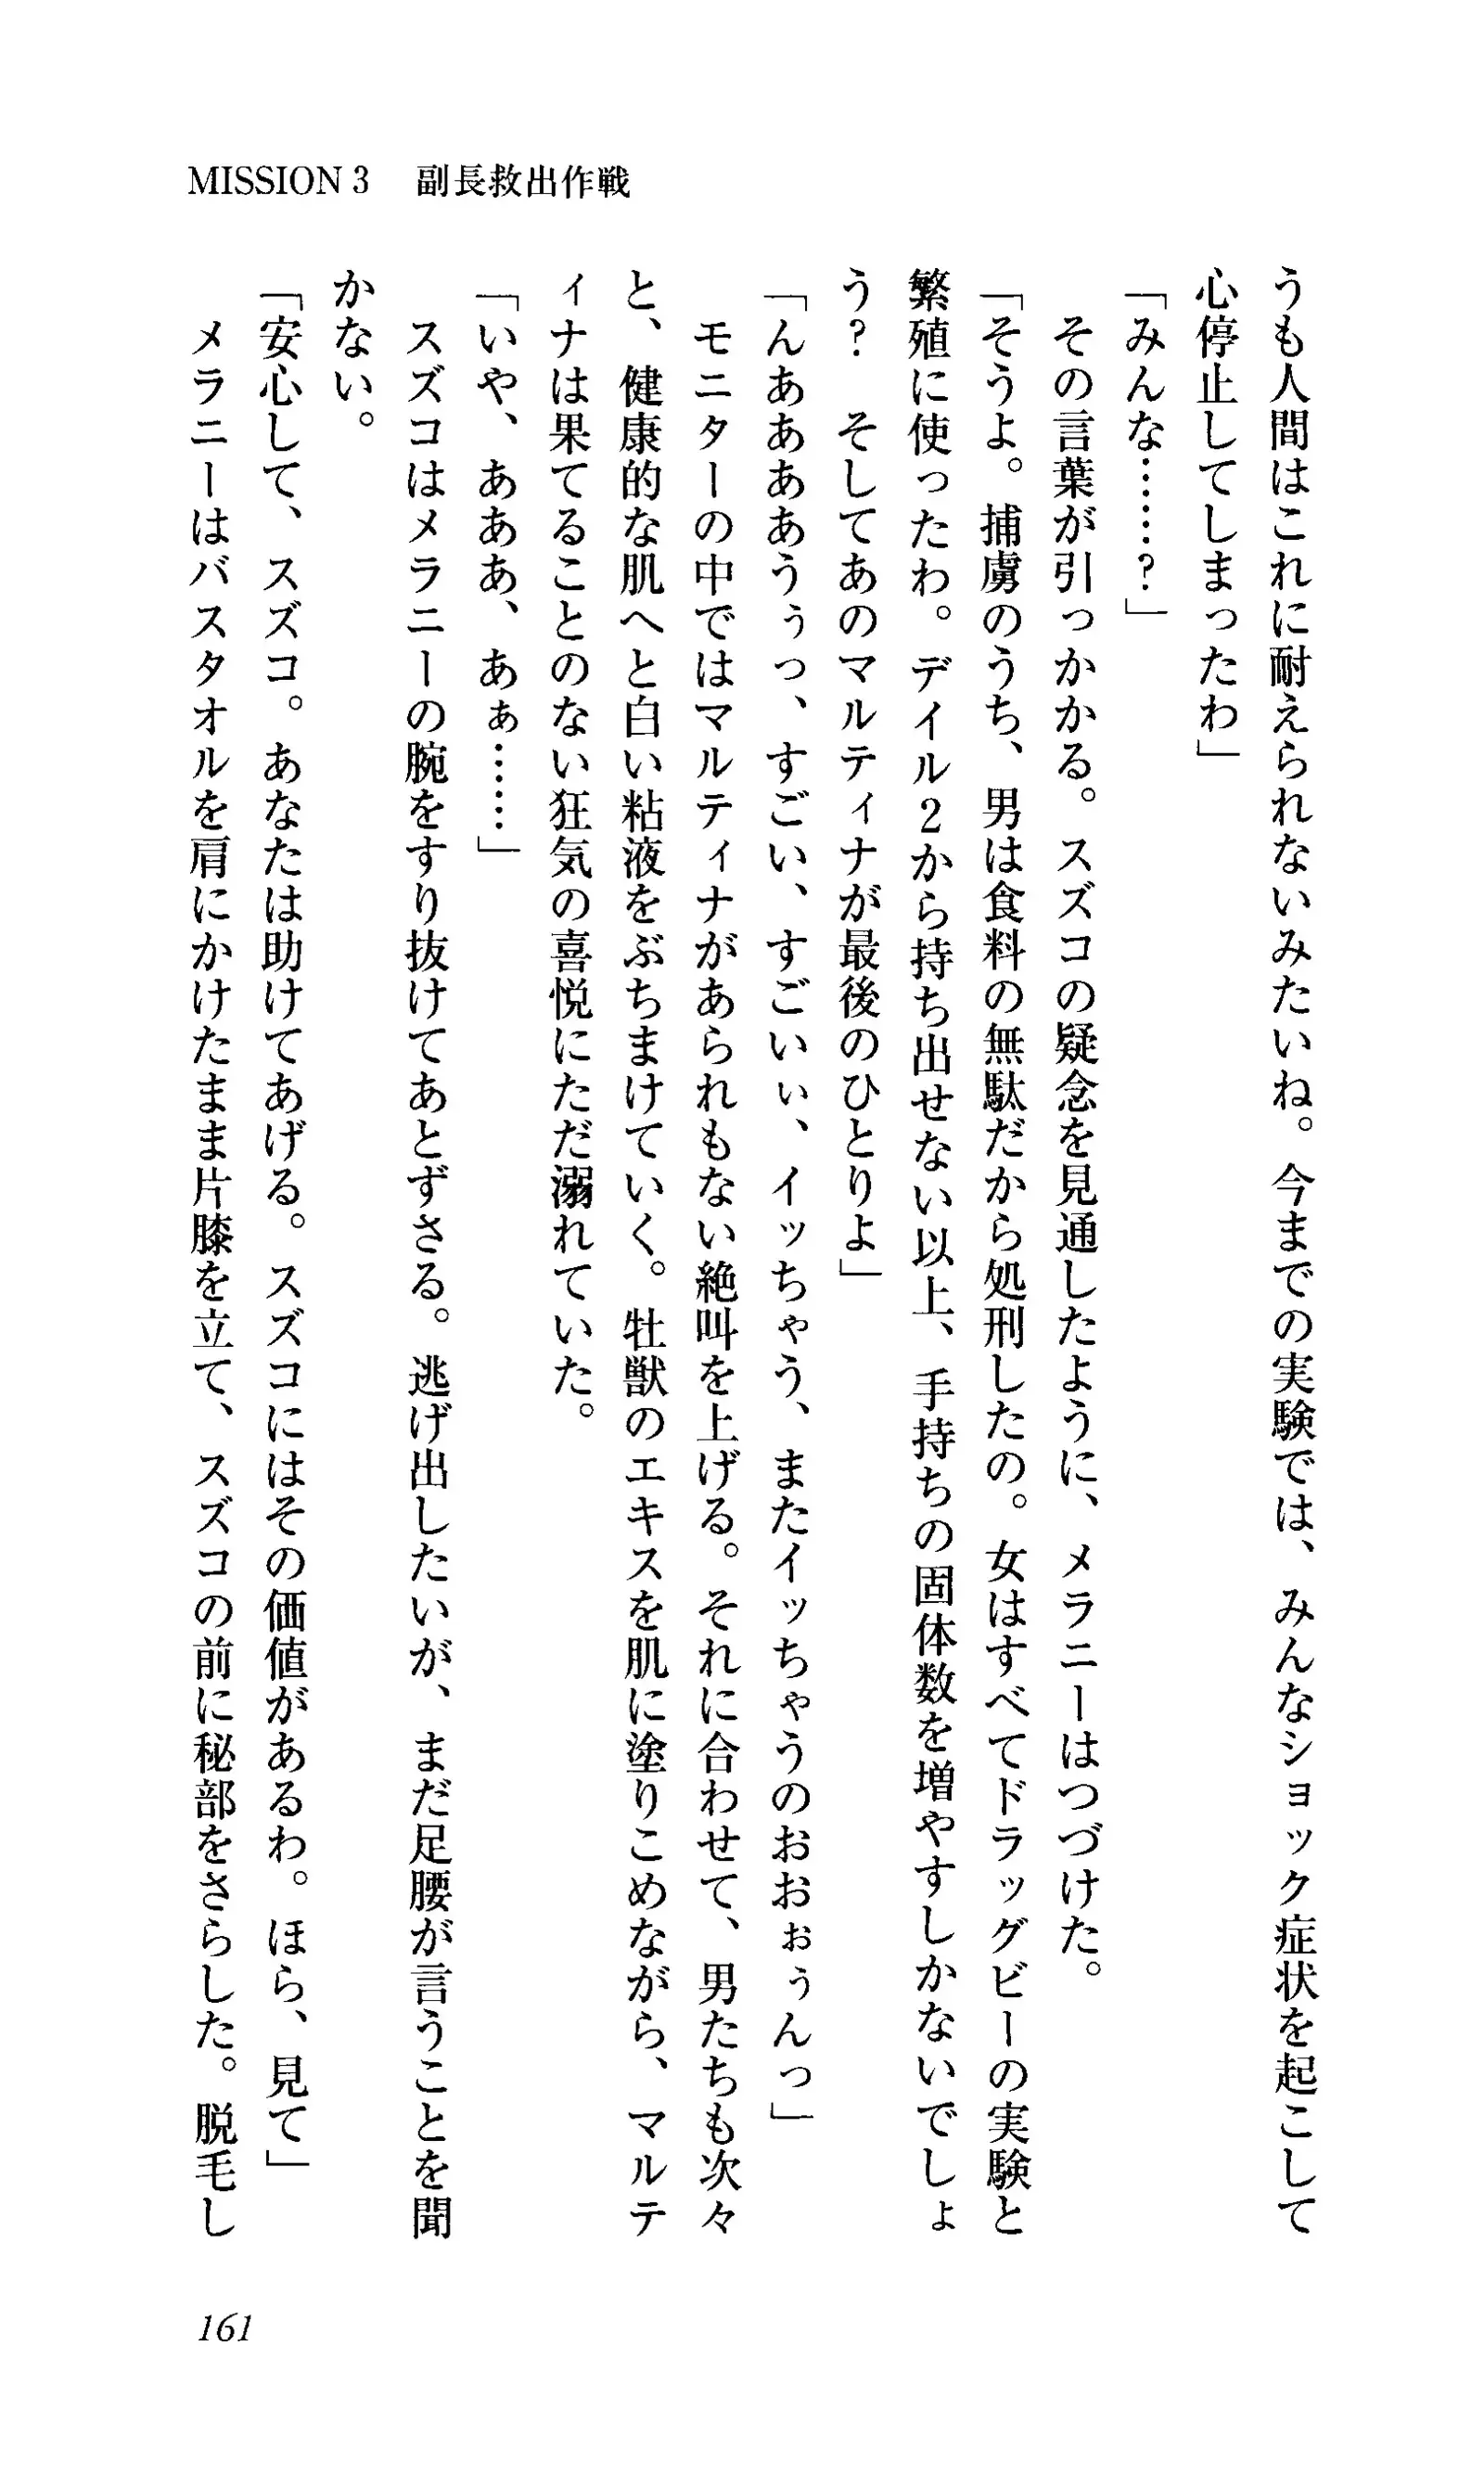 MISSION 3　副長救出作戦
うも人間はこれに耐えられないみたいね。今までの実験では、みんなショック症状を起こして
心停止してしまったわ」
「みんな……？」
　その言葉が引っかかる。スズコの疑念を見通したように、メラニーはつづけた。
「そうよ。捕虜のうち、男は食料の無駄だから処刑したの。女はすべてドラッグビーの実験と
繁殖に使ったわ。デイル2から持ち出せない以上、手持ちの固体数を増やすしかないでしょ
う？　そしてあのマルティナが最後のひとりよ」
「んああああうぅっ、すごい、すごいぃ、イッちゃう、またイッちゃうのおおぉぅんっ」
　モニターの中ではマルティナがあられもない絶叫を上げる。それに合わせて、男たちも次々
と、健康的な肌へと白い粘液をぶちまけていく。牡獣のエキスを肌に塗りこめながら、マルテ
ィナは果てることのない狂気の喜悦にただ溺れていた。
「いや、あああ、あぁ……」
　スズコはメラニーの腕をすり抜けてあとずさる。逃げ出したいが、まだ足腰が言うことを聞
かない。
「安心して、スズコ。あなたは助けてあげる。スズコにはその価値があるわ。ほら、見て」
　メラニーはバスタオルを肩にかけたまま片膝を立て、スズコの前に秘部をさらした。脱毛し
161